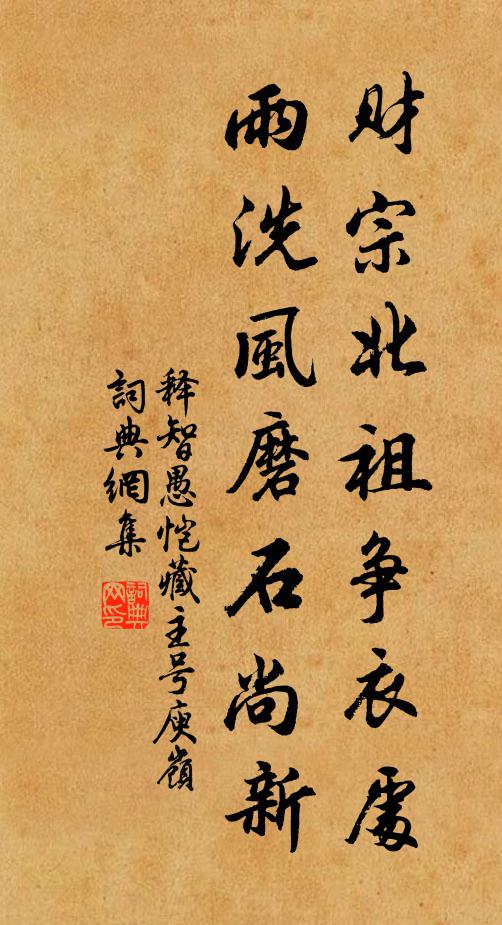 財宗北祖争衣處
雨洗風磨石尚新
释智愚恺藏主号庾嶺
詞典網集
詞典
网印